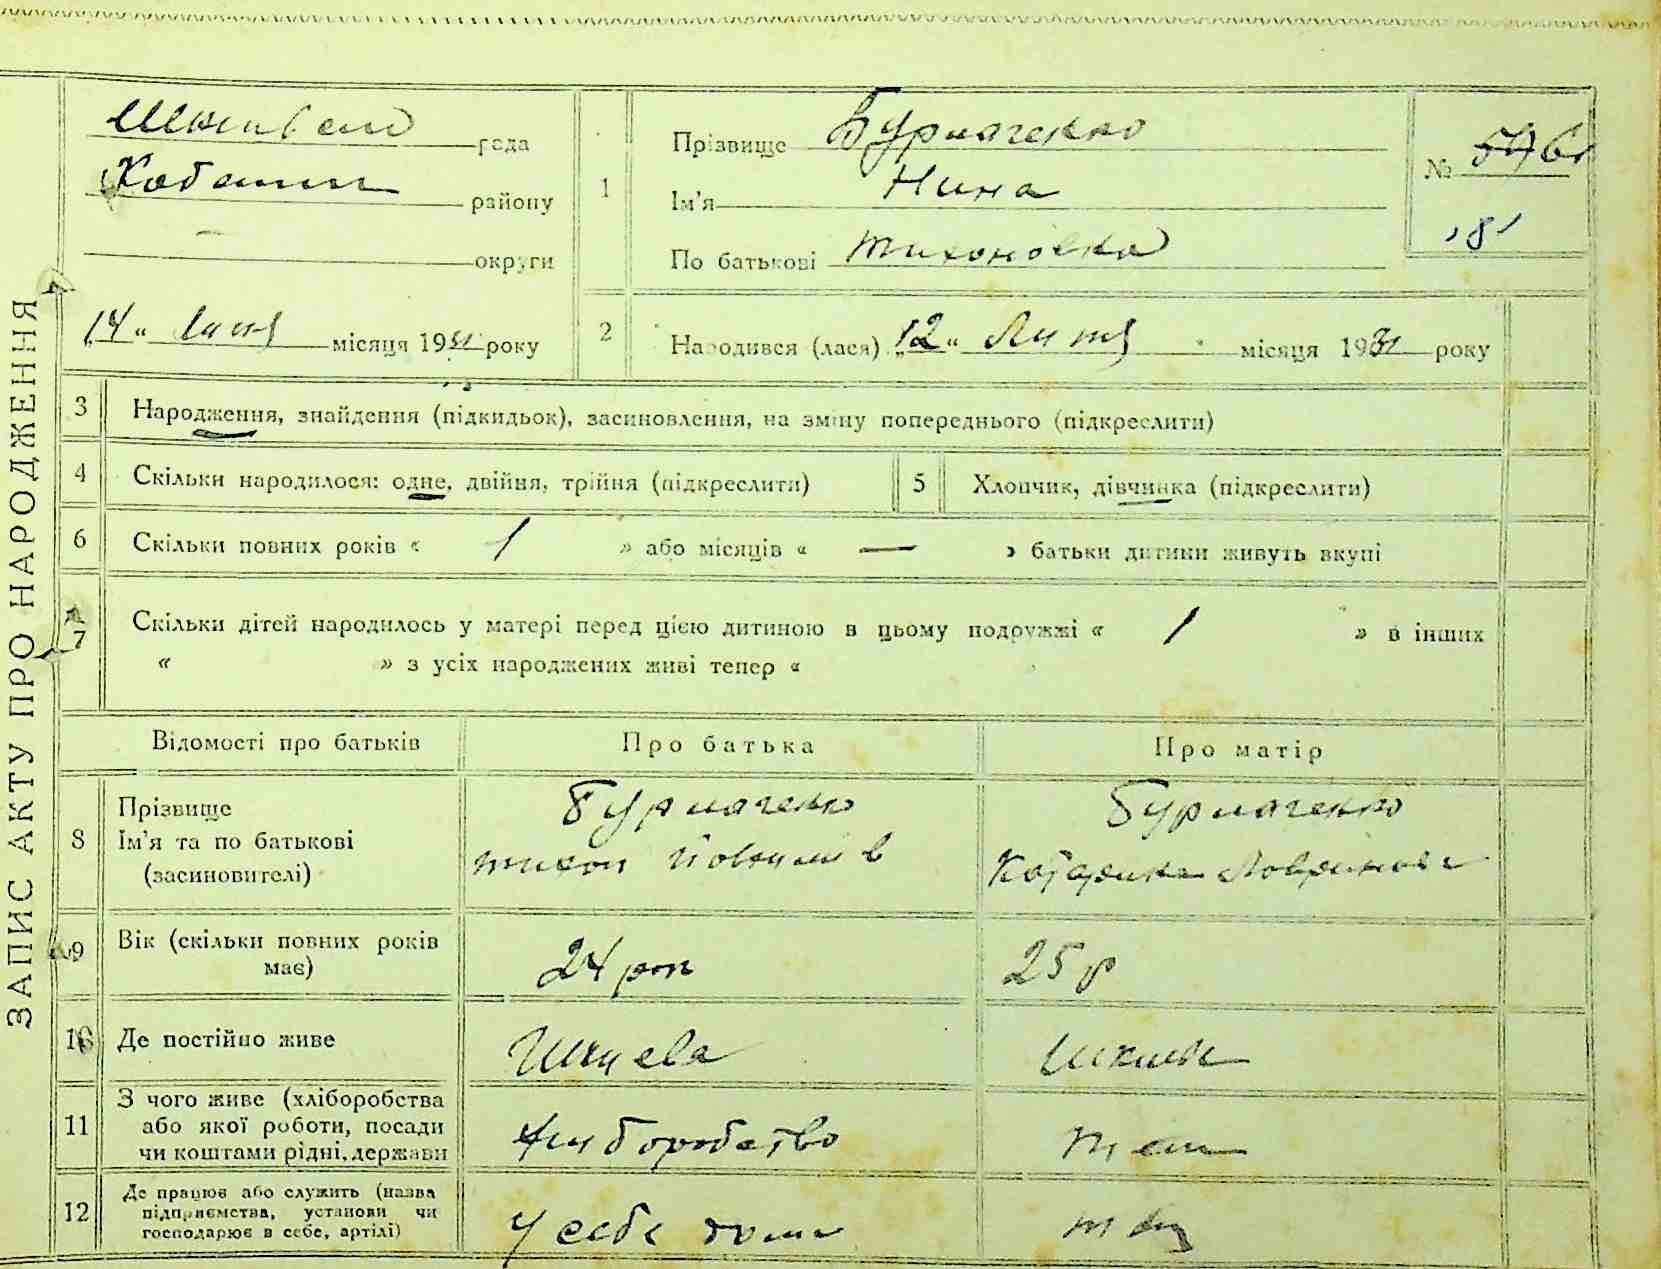 ЗАПИС АКТУ ПРО НАРОДЖЕННЯ
рада
району
округи
„14“ місяця 1931 року
1
Прізвище Бурлаченко
Ім'я Нина
По батькові Тихоновна
№ 61
181
2
Народився (лася) „12“ Лютя місяця 1931 року
3 Народження, знайдення (підкидьок), засиновлення, на зміну попереднього (підкреслити)
4 Скільки народилося: одне, двійня, трійня (підкреслити)
5 Хлопчик, дівчинка (підкреслити)
6 Скільки повних років « 1 » або місяців « — » батьки дитини живуть вкупі
7 Скільки дітей народилось у матері перед цією дитиною в цьому подружжі « 1 » в інших
« » з усіх народжених живі тепер «
Відомості про батьків Про батька Про матір
8 Прізвище Бурлаченко Бурлаченко
Ім'я та по батькові Тихон
(засиновителі)
9 Вік (скільки повних років 24 рок 25 р
має)
10 Де постійно живе
11 З чого живе (хліборобства
або якої роботи, посади хліборобство
чи коштами рідні, держави
12 Де працює або служить (назва
підприємства, установи чи у себе дома
господарює в себе, артілі)